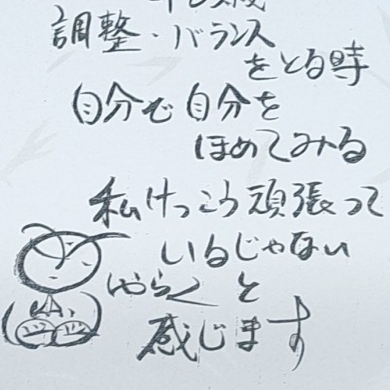 調整・バランス
をとる時
自分で自分を
ほめてみる
私けっこう頑張って
いるじゃない
と
感じます